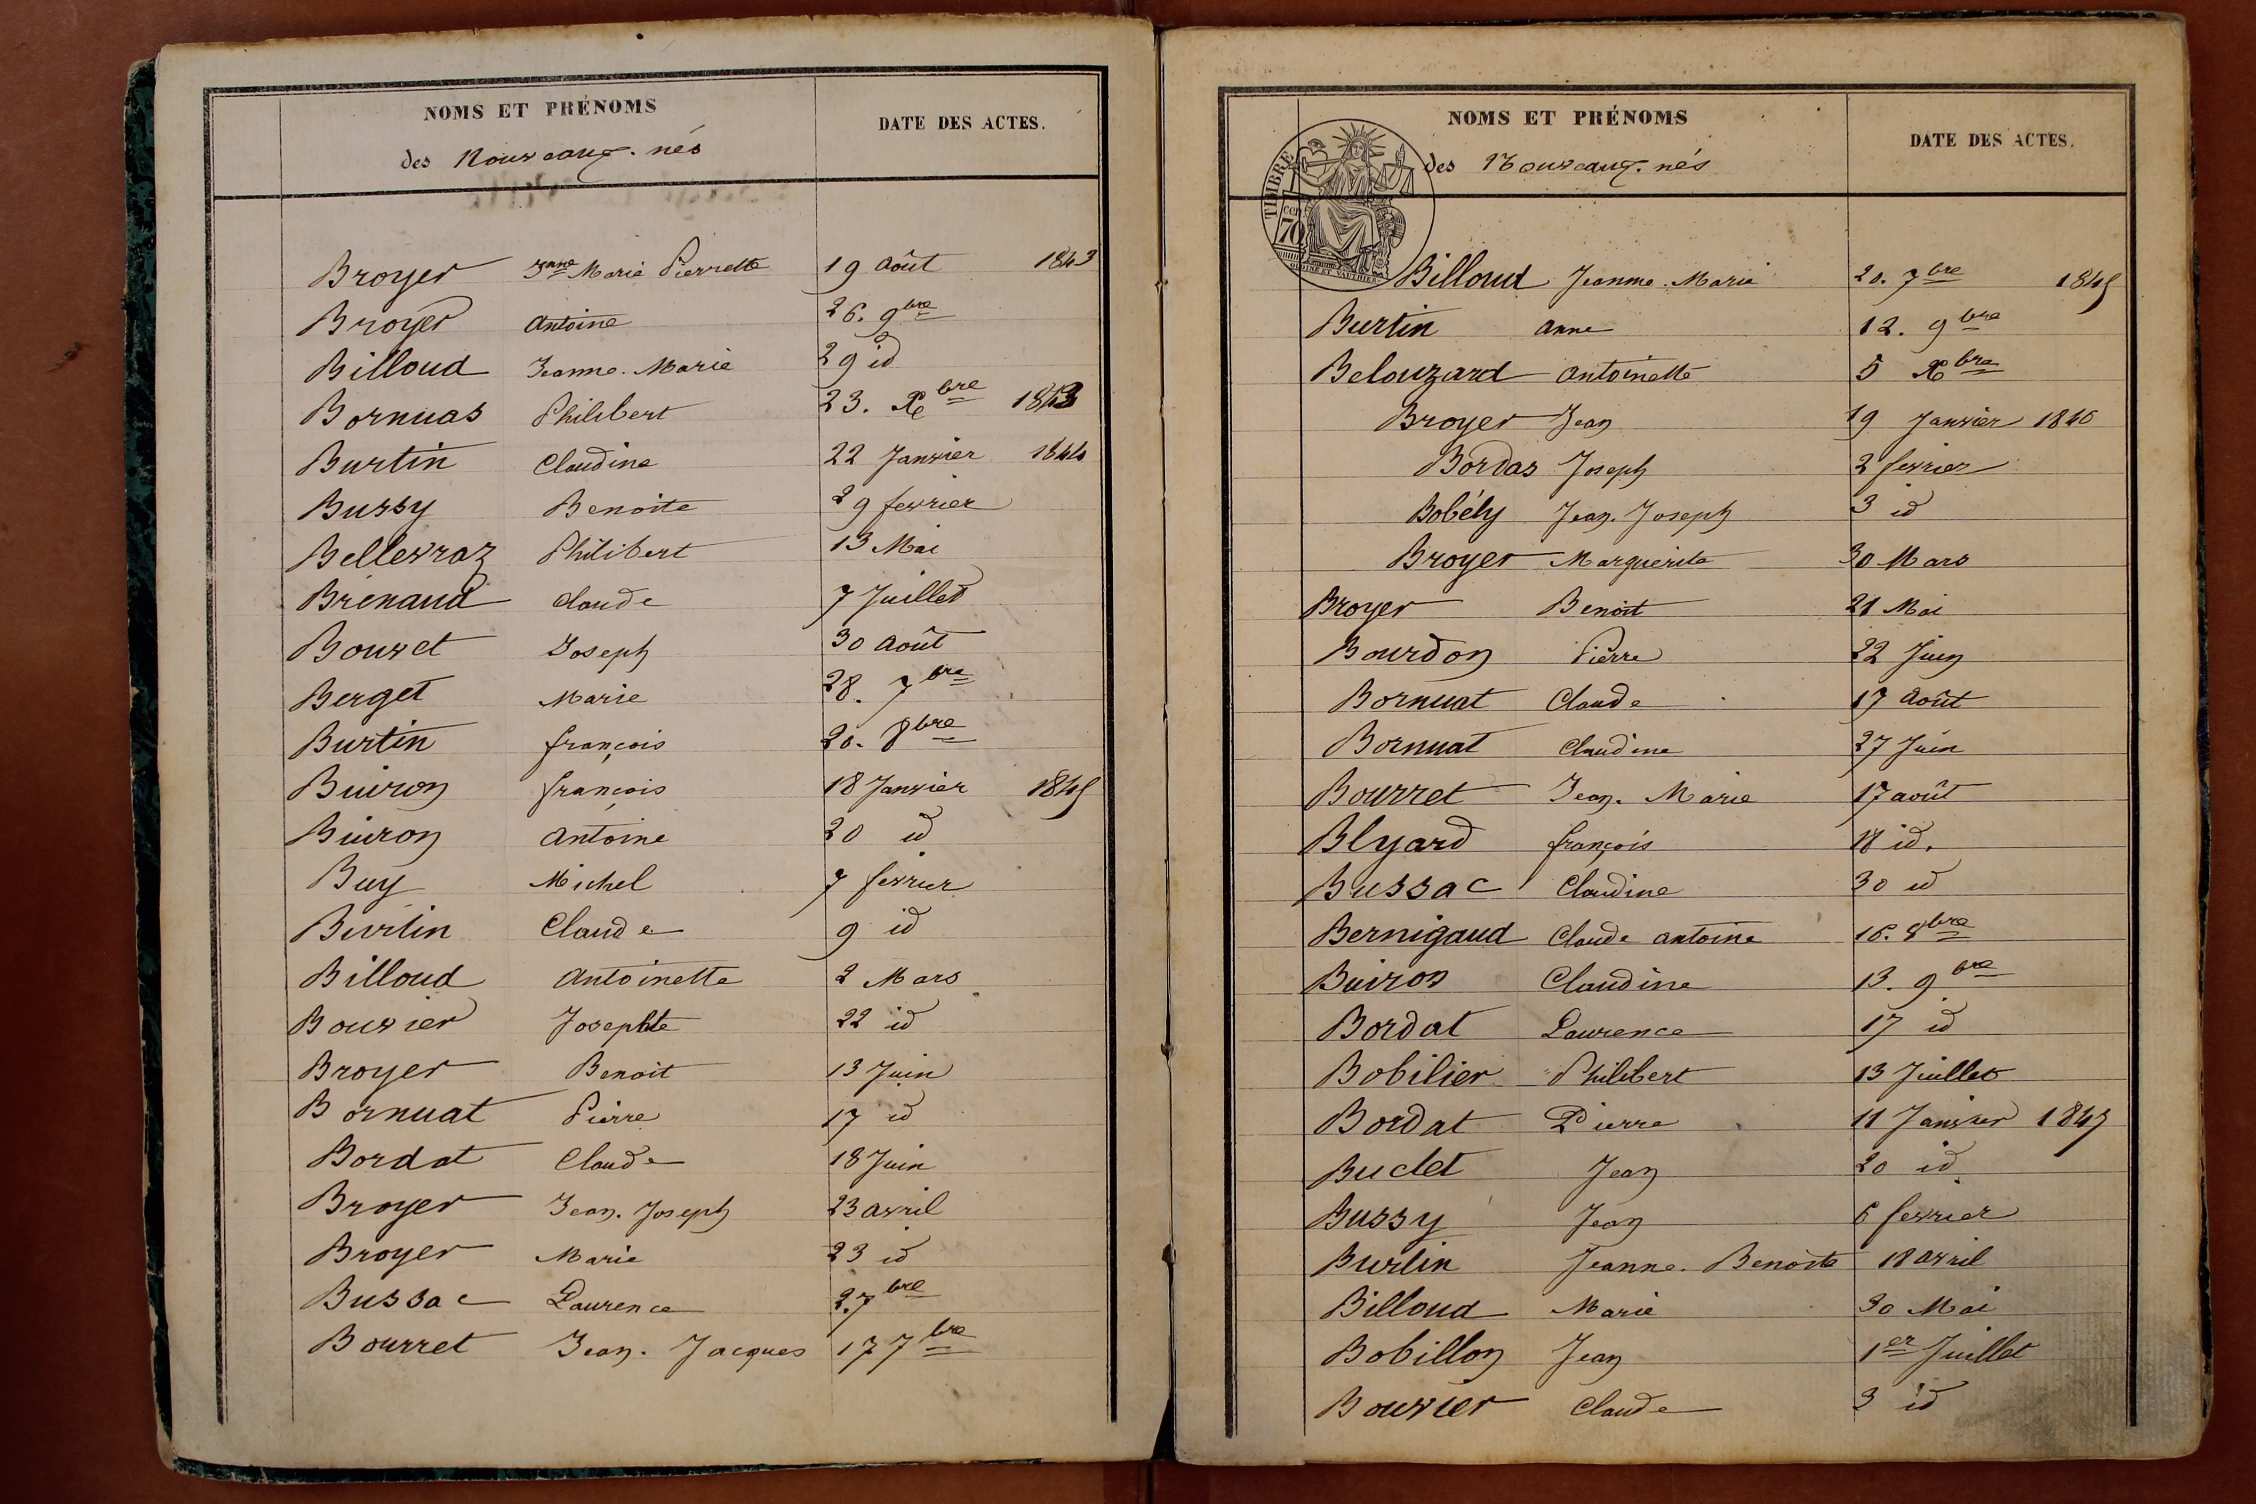 NOMS ET PRÉNOMS
des Nouveaux-nés
DATE DES ACTES.
Broyer Jnne Marie Pierrette 19 Août 1843
Broyer Antoine 26. 9bre
Billoud Jeanne-Marie 29 id
Bornuas Philibert 23. Xbre 1843
Burtin Claudine 22 Janvier 1844
Bussy Benoite 29 fevrier
Bellevraz Philibert 13 Mai
Brenaud Claude 7 Juillet
Bouvet Joseph 30 Août
Berget Marie 28. 7bre
Burtin françois 20. 8bre
Buiron françois 18 Janvier 1845
Buiron Antoine 20 id
Buy Michel 7 fevrier
Burtin Claude 9 id
Billoud Antoinette 2 Mars
Bouvier Josephte 22 id
Broyer Benoit 13 Juin
Bornuat Pierre 17 id
Bordat Claude 18 Juin
Broyer Jean-Joseph 23 avril
Broyer Marie 23 id
Bussac Laurence 2.7bre
Bourret Jean-Jacques 17 7bre
NOMS ET PRÉNOMS
des Nouveaux-nés
DATE DES ACTES.
TIMBRE
70
Billoud Jeanne-Marie 20. 7bre 1845
Burtin Anne 12. 9bre
Belouzard Antoinette 5 Xbre
Broyer Jean 19 Janvier 1846
Bordas Joseph 2 fevrier
Bobély Jean-Joseph 3 id
Broyer Marguerite 30 Mars
Broyer Benoit 21 Mai
Bourdon Pierre 22 Juin
Bornuat Claude 17 Août
Bornuat Claudine 27 Juin
Bourret Jean-Marie 17 août
Blyard françois 18 id.
Bussac Claudine 30 id
Bernigaud Claude Antoine 16. 8bre
Buiron Claudine 13. 9bre
Bordat Laurence 17 id
Bobilier Philibert 13 Juillet
Bordat Pierre 11 Janvier 1847
Buclet Jean 20 id
Bussy Jean 6 fevrier
Burtin Jeanne-Benoite 18 avril
Billoud Marie 30 Mai
Bobillon Jean 1er Juillet
Bouvier Claude 3 id